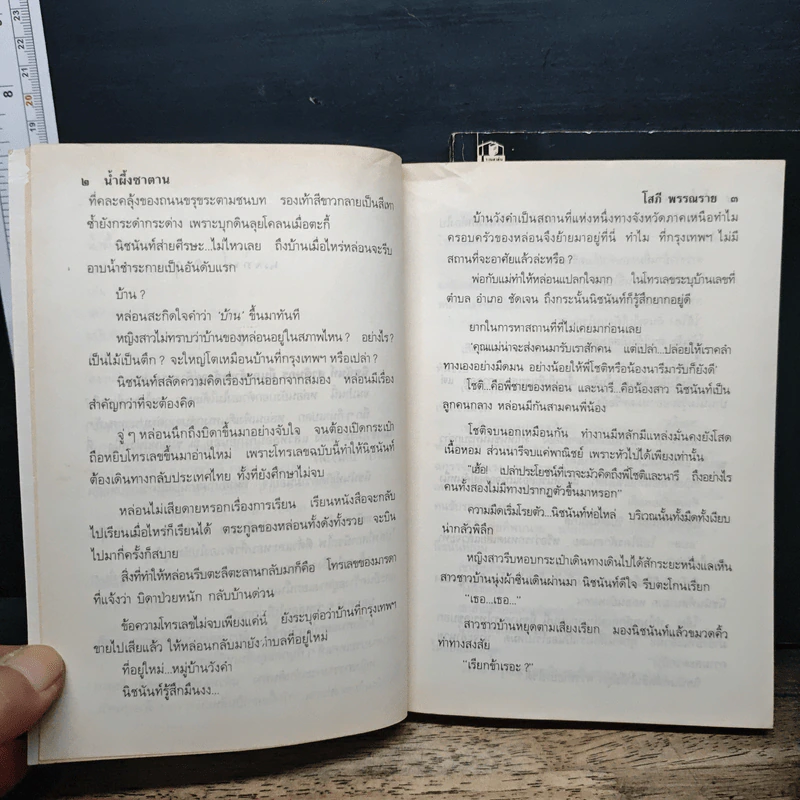 ๒ น้ำผึ้งซาตาน
ที่คละคลุ้งของถนนขรุขระตามชนบท รองเท้าสีขาวกลายเป็นสีเทา
ซ้ำยังกระดำกระด่าง เพราะบุกดินลุยโคลนเมื่อตะกี้
นิชนันท์ส่ายศีรษะ...ไม่ไหวเลย ถึงบ้านเมื่อไหร่หล่อนจะรีบ
อาบน้ำชำระกายเป็นอันดับแรก
บ้าน ?
หล่อนสะกิดใจคำว่า 'บ้าน' ขึ้นมาทันที
หญิงสาวไม่ทราบว่าบ้านของหล่อนอยู่ในสภาพไหน ? อย่างไร ?
เป็นไม้เป็นตึก ? จะใหญ่โตเหมือนบ้านที่กรุงเทพฯ หรือเปล่า ?
นิชนันท์สลัดความคิดเรื่องบ้านออกจากสมอง หล่อนมีเรื่อง
สำคัญกว่าที่จะต้องคิด
จู่ ๆ หล่อนนึกถึงบิดาขึ้นมาอย่างจับใจ จนต้องเปิดกระเป๋า
ถือหยิบโทรเลขขึ้นมาอ่านใหม่ เพราะโทรเลขฉบับนี้ทำให้นิชนันท์
ต้องเดินทางกลับประเทศไทย ทั้งที่ยังศึกษาไม่จบ
หล่อนไม่เสียดายหรอกเรื่องการเรียน เรียนหนังสือจะกลับ
ไปเรียนเมื่อไหร่ก็เรียนได้ ตระกูลของหล่อนทั้งดังทั้งรวย จะบิน
ไปมากี่ครั้งก็สบาย
สิ่งที่ทำให้หล่อนรีบตะลีตะลานกลับมาก็คือ โทรเลขของมารดา
ที่แจ้งว่า บิดาป่วยหนัก กลับบ้านด่วน
ข้อความโทรเลขไม่จบเพียงแค่นี้ ยังระบุต่อว่าบ้านที่กรุงเทพฯ
ขายไปเสียแล้ว ให้หล่อนกลับมายังตำบลที่อยู่ใหม่
ที่อยู่ใหม่...หมู่บ้านวังคำ
นิชนันท์รู้สึกมึนงง...
โสภี พรรณราย ๓
บ้านวังคำเป็นสถานที่แห่งหนึ่งทางจังหวัดภาคเหนือทำไม
ครอบครัวของหล่อนจึงย้ายมาอยู่ที่นี่ ทำไม ที่กรุงเทพฯ ไม่มี
สถานที่จะอาศัยแล้วล่ะหรือ ?
พ่อกับแม่ทำให้หล่อนแปลกใจมาก ในโทรเลขระบุบ้านเลขที่
ตำบล อำเภอ ชัดเจน ถึงกระนั้นนิชนันท์ก็รู้สึกยากอยู่ดี
ยากในการหาสถานที่ที่ไม่เคยมาก่อนเลย
'คุณแม่น่าจะส่งคนมารับเราสักคน แต่เปล่า...ปล่อยให้เราคลำ
ทางเองอย่างมืดมน อย่างน้อยให้พี่โชติหรือน้องนารีมารับก็ยังดี'
โชติ...คือพี่ชายของหล่อน และนารี...คือน้องสาว นิชนันท์เป็น
ลูกคนกลาง หล่อนมีกันสามคนพี่น้อง
โชติจบนอกเหมือนกัน ทำงานมีหลักมีแหล่งมั่นคงยังโสด
เนื้อหอม ส่วนนารีจบแค่พาณิชย์ เพราะหัวไปได้เพียงเท่านั้น
"เฮ้อ! เปล่าประโยชน์ที่เราจะมัวคิดถึงพี่โชติและนารี ถึงอย่างไร
คนทั้งสองไม่มีทางปรากฏตัวขึ้นมาหรอก"
ความมืดเริ่มโรยตัว...นิชนันท์ห่อไหล่ บริเวณนั้นทั้งมืดทั้งเงียบ
น่ากลัวพิลึก
หญิงสาวรีบหอบกระเป๋าเดินทางเดินไปได้สักระยะหนึ่งแลเห็น
สาวชาวบ้านนุ่งผ้าซิ่นเดินผ่านมา นิชนันท์ดีใจ รีบตะโกนเรียก
"เธอ...เธอ..."
สาวชาวบ้านหยุดตามเสียงเรียก มองนิชนันท์แล้วขมวดคิ้ว
ท่าทางสงสัย
"เรียกข้าเรอะ ?"